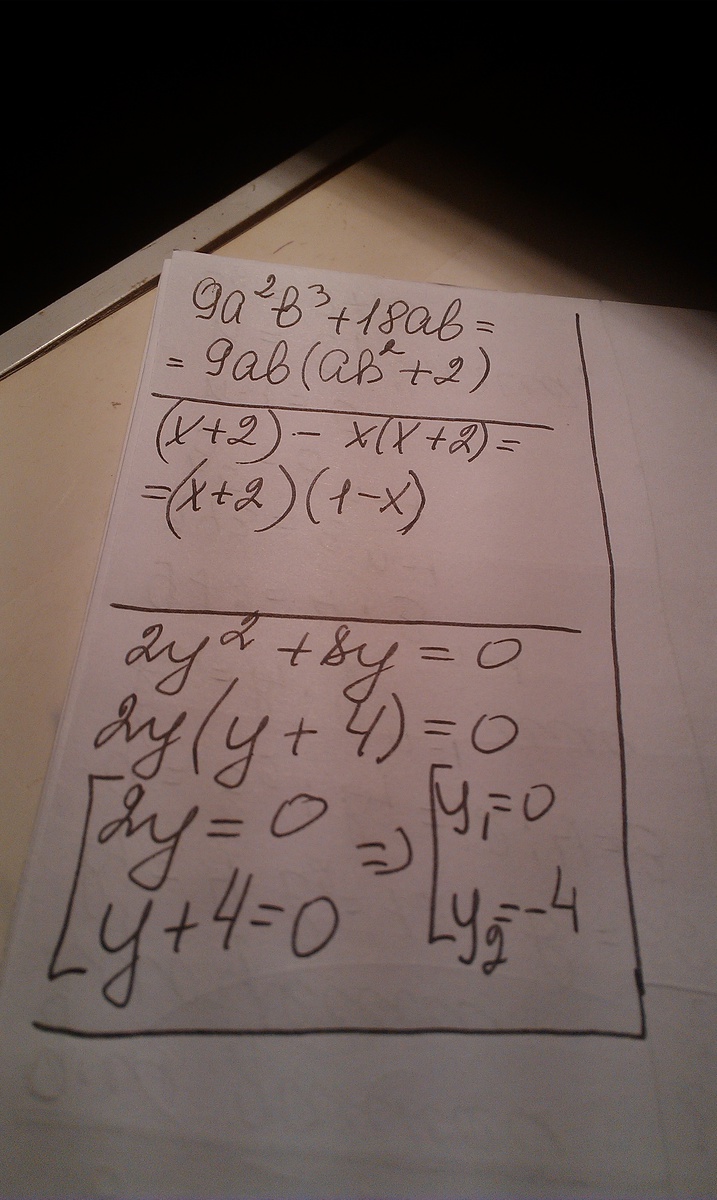 9a²b³+18ab=
= 9ab(ab²+2)
(x+2)- x(x+2)=
=(x+2)(1-x)
2y² +8y = 0
2y(y+4)=0
[2y = 0 => [y₁=0
y+4=0 y₂=-4